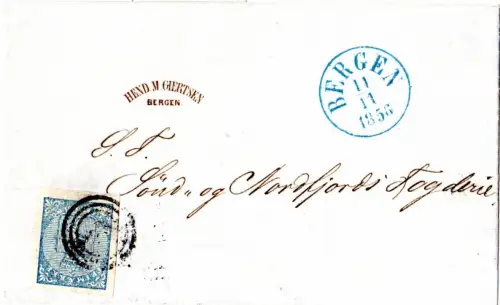 HEND. M. GIERTSEN
BERGEN
BERGEN
11
11
1856
S. T.
Sönd- og Nordfjords Fogderie,